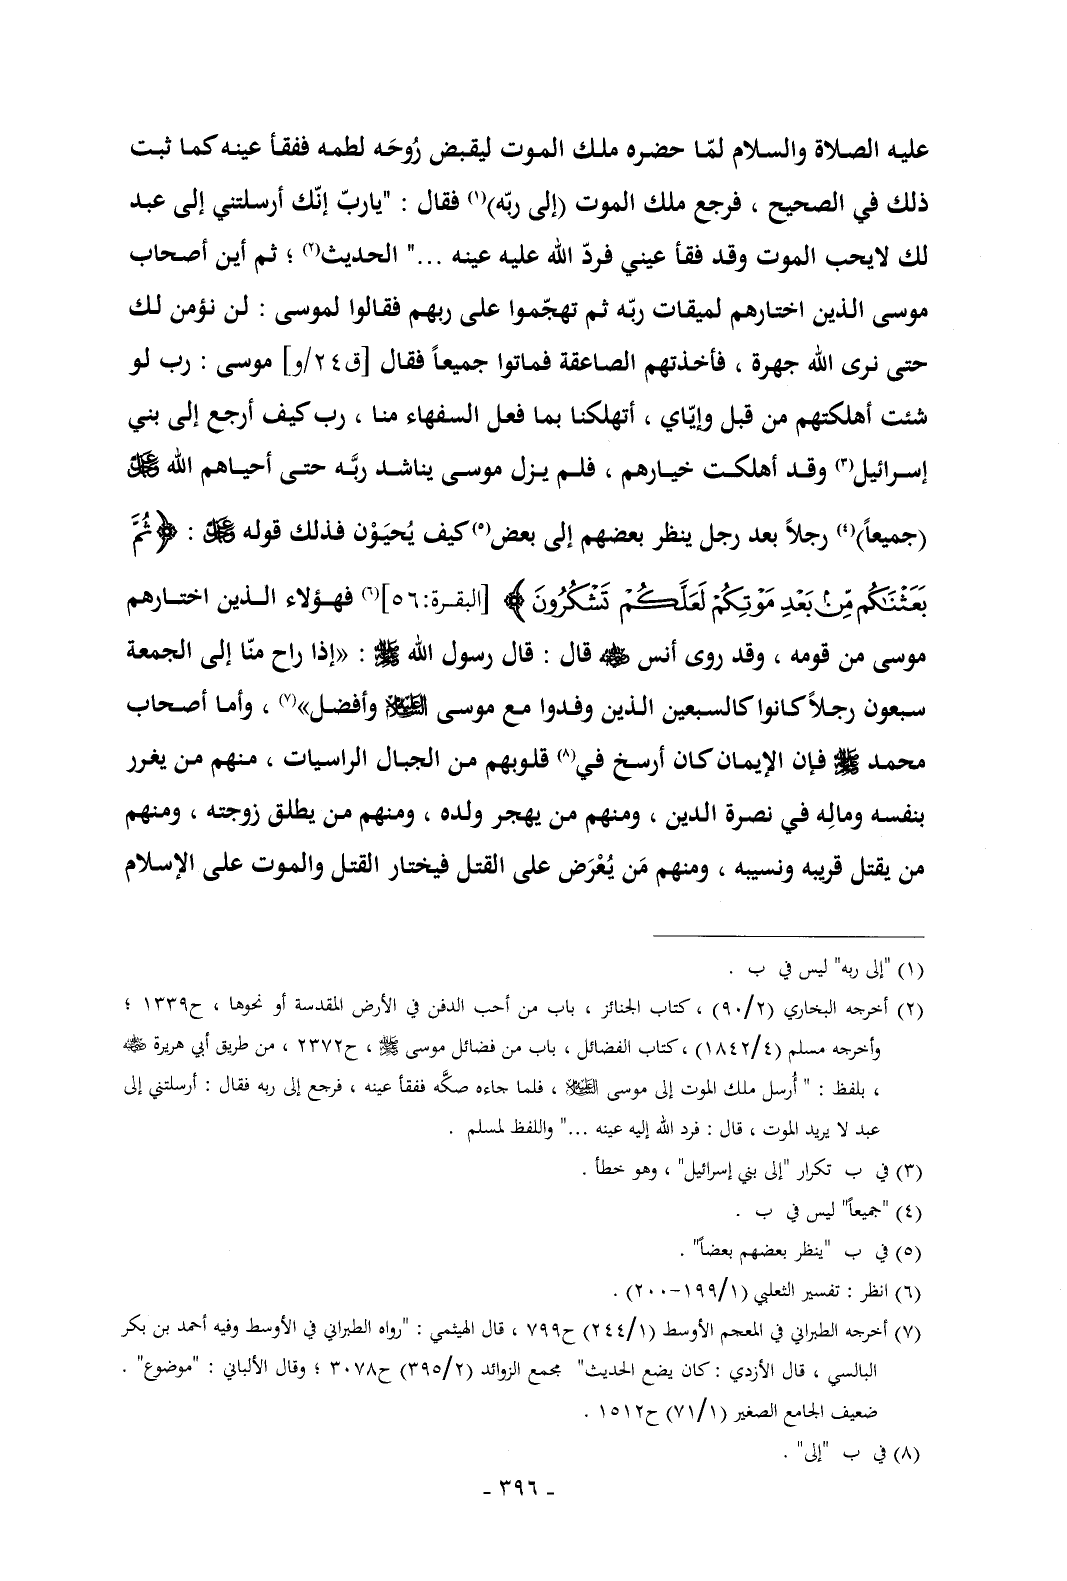 عليه الصلاة والسلام لمّا حضره ملك الموت ليقبض رُوحَه لطمه ففقأ عينه كما ثبت
ذلك في الصحيح ، فرجع ملك الموت (إلى ربّه)(١) فقال : "ياربّ إنّك أرسلتني إلى عبد
لك لايحب الموت وقد فقأ عيني فردّ الله عليه عينه ..." الحديث(٢) ؛ ثم أين أصحاب
موسى الذين اختارهم لميقات ربّه ثم تهجّموا على ربهم فقالوا لموسى : لن نؤمن لك
حتى نرى الله جهرة ، فأخذتهم الصاعقة فماتوا جميعاً فقال [ق٢٤/و] موسى : رب لو
شئت أهلكتهم من قبل وإيّاي ، أتهلكنا بما فعل السفهاء منا ، رب كيف أرجع إلى بني
إسرائيل(٣) وقد أهلكت خيارهم ، فلم يزل موسى يناشد ربَّه حتى أحياهم الله ﷿
(جميعاً)(٤) رجلاً بعد رجل ينظر بعضهم إلى بعض(٥) كيف يُحيَوْن فذلك قوله ﷿ : ﴿ثُمَّ
بَعَثْنَٰكُم مِّنۢ بَعْدِ مَوْتِكُمْ لَعَلَّكُمْ تَشْكُرُونَ﴾ [البقرة:٥٦](٦) فهؤلاء الذين اختارهم
موسى من قومه ، وقد روى أنس ﵁ قال : قال رسول الله ﷺ : «إذا راح منّا إلى الجمعة
سبعون رجلاً كانوا كالسبعين الذين وفدوا مع موسى ﵇ وأفضل»(٧) ، وأما أصحاب
محمد ﷺ فإن الإيمان كان أرسخ في(٨) قلوبهم من الجبال الراسيات ، منهم من يغرر
بنفسه ومالِه في نصرة الدين ، ومنهم من يهجر ولده ، ومنهم من يطلق زوجته ، ومنهم
من يقتل قريبه ونسيبه ، ومنهم مَن يُعْرَض على القتل فيختار القتل والموت على الإسلام
(١) "إلى ربه" ليس في ب .
(٢) أخرجه البخاري (٩٠/٢) ، كتاب الجنائز ، باب من أحب الدفن في الأرض المقدسة أو نحوها ، ح١٣٣٩ ؛
وأخرجه مسلم (١٨٤٢/٤) ، كتاب الفضائل ، باب من فضائل موسى ﷺ ، ح٢٣٧٢ ، من طريق أبي هريرة ﵁
، بلفظ : " أُرسل ملك الموت إلى موسى ﵇ ، فلما جاءه صكَّه ففقأ عينه ، فرجع إلى ربه فقال : أرسلتني إلى
عبد لا يريد الموت ، قال : فرد الله إليه عينه ..." واللفظ لمسلم .
(٣) في ب تكرار "إلى بني إسرائيل" ، وهو خطأ .
(٤) "جميعاً" ليس في ب .
(٥) في ب "ينظر بعضهم بعضاً" .
(٦) انظر : تفسير الثعلبي (١٩٩/١-٢٠٠) .
(٧) أخرجه الطبراني في المعجم الأوسط (٢٤٤/١) ح٧٩٩ ، قال الهيثمي : "رواه الطبراني في الأوسط وفيه أحمد بن بكر
البالسي ، قال الأزدي : كان يضع الحديث" مجمع الزوائد (٣٩٥/٢) ح٣٠٧٨ ؛ وقال الألباني : "موضوع" .
ضعيف الجامع الصغير (٧١/١) ح١٥١٢ .
(٨) في ب "إلى" .
- ٣٩٦ -